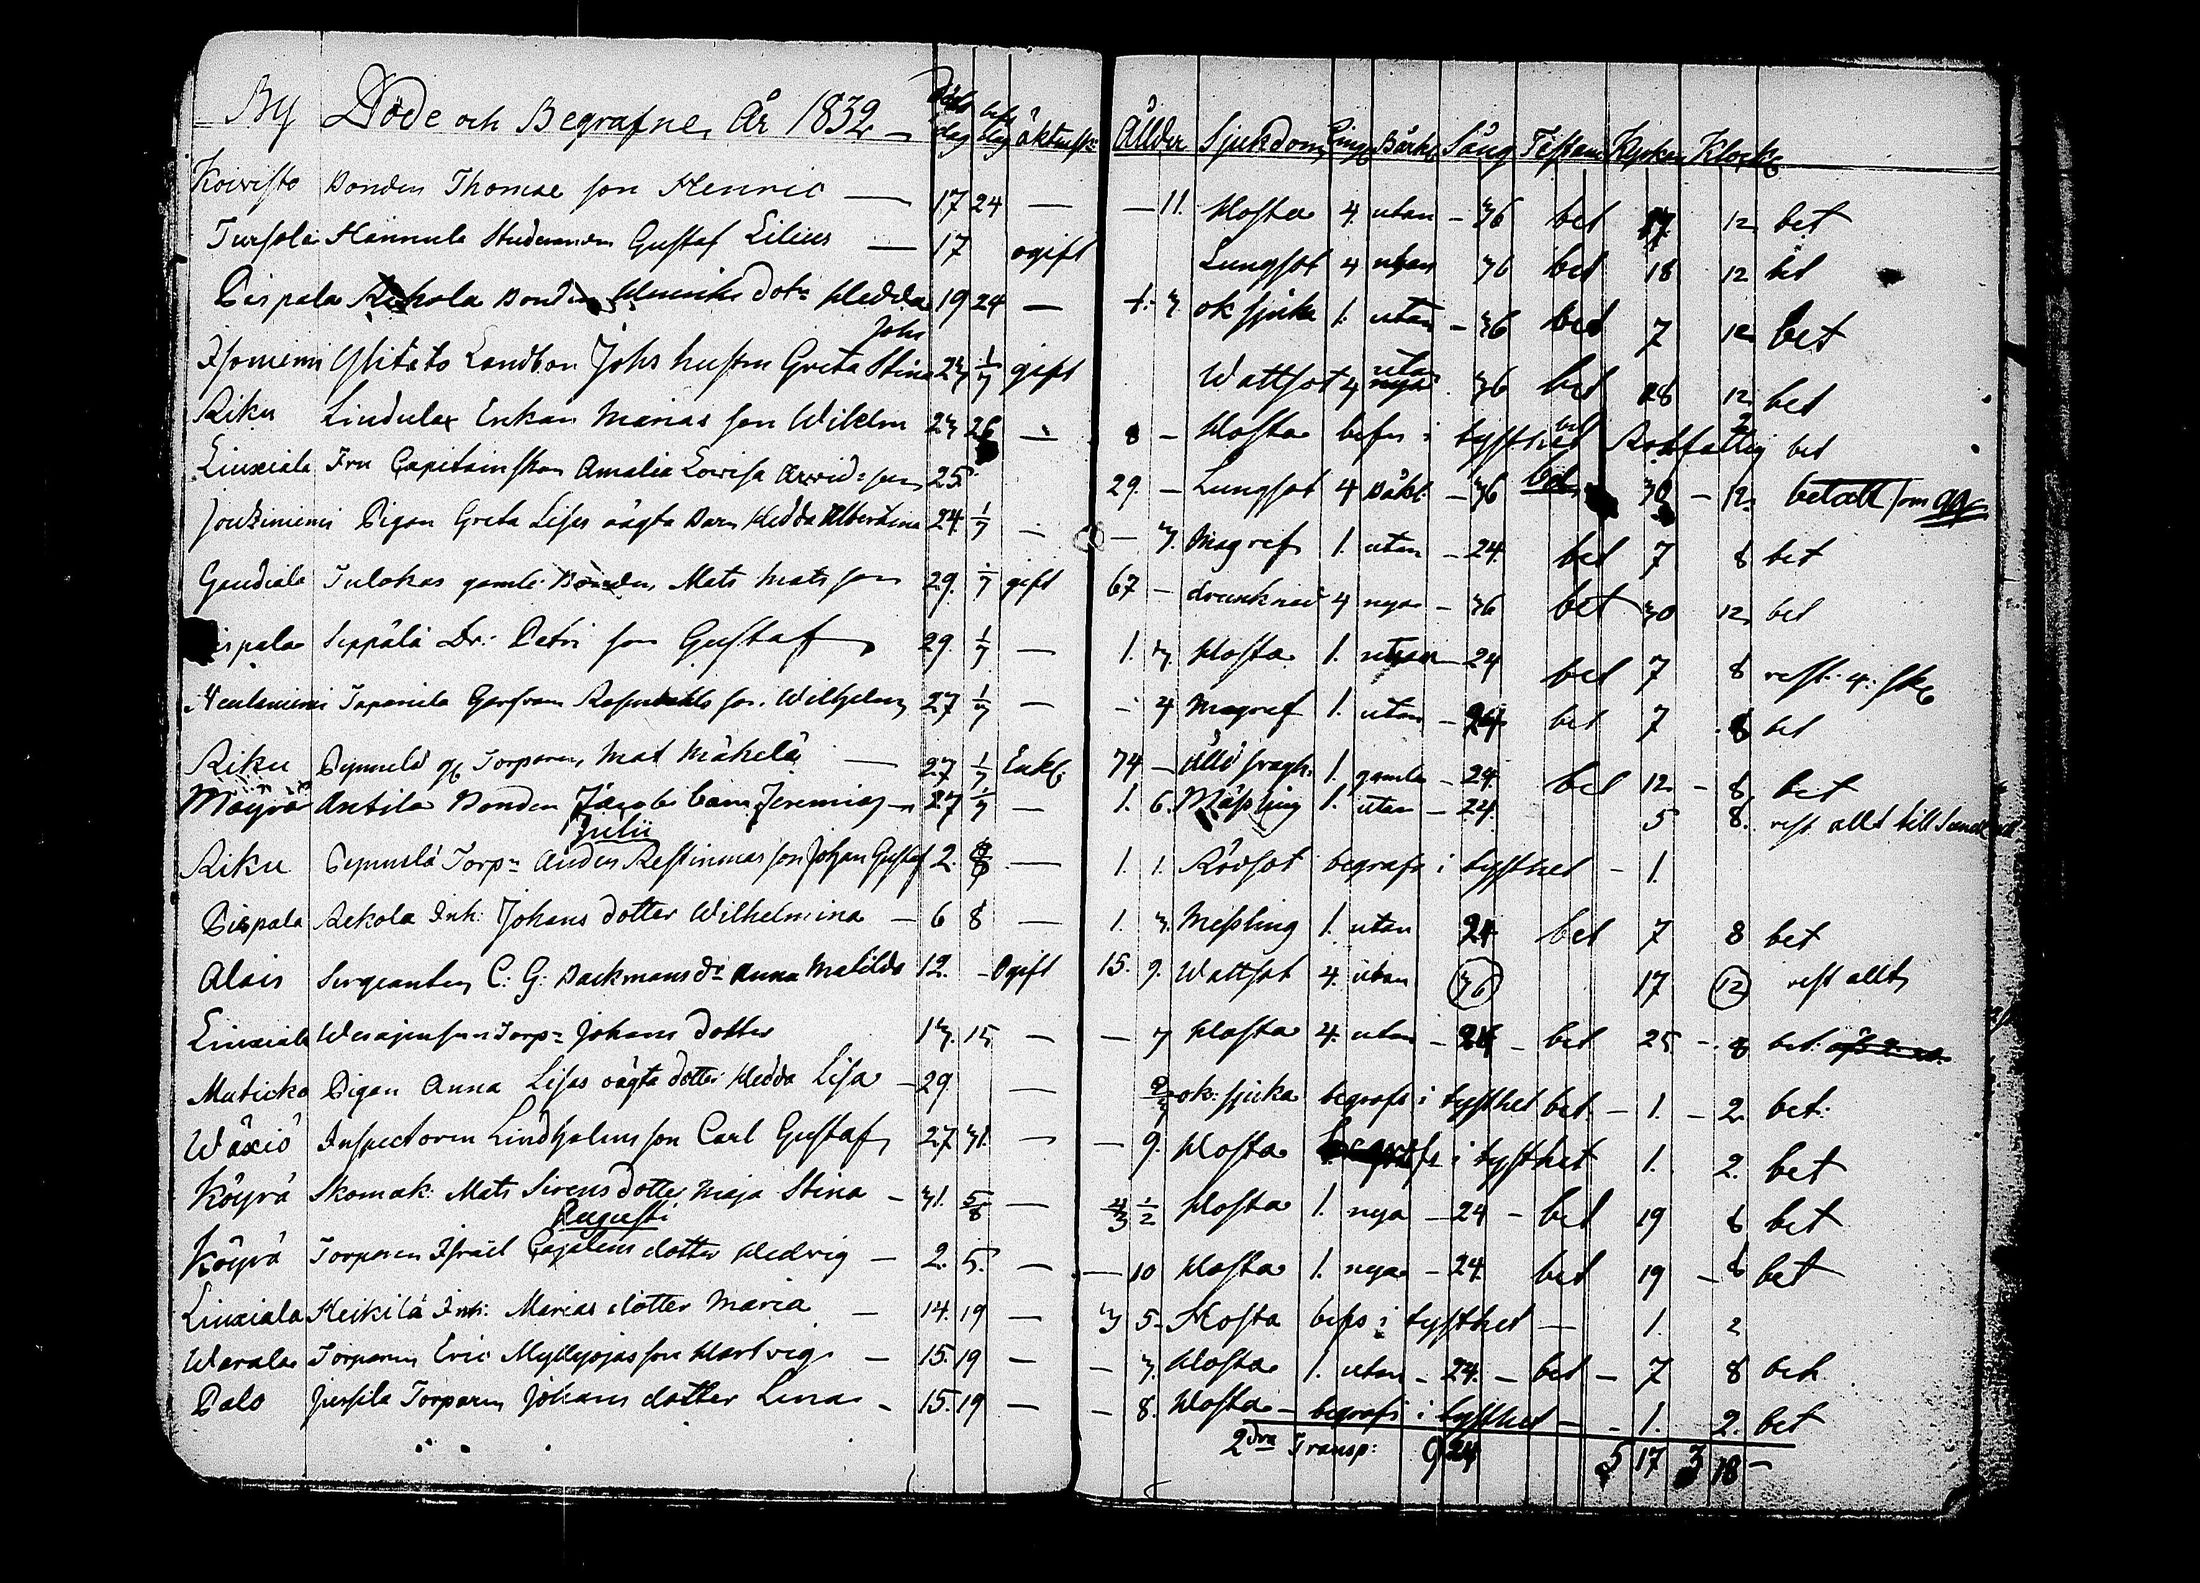 By Döde och Begrafne, År 1832 Döds dag beg dag äktensk: Ållder Sjukdom Ring Bårkl Sång Testam Kyrkan Klock
Koivisto Bonden Thomae son Henric — 17 24 — — 11. Hosta 4. utan — 36 bet 17 12 bet
Tursola Hannula Studeranden Gustaf Lilius — 17 ogift Lungsot 4 utan 36 bet 18 12 bet
Pispala Rekola Bonden Henriks dotr Hedda 19 24 — 1. 3. ok sjuka 1. utan — 36 bet 7 12 bet
Isoniemi Landbon Johs hustru Greta Stina Johs 23 1/7 gift Wattsot 4 utan 36 bet 28 12 bet
Riku Lindulax Enkan Marias son Wilelm 23 26 — 8 — Hosta i tysthet bet Rotfattig bet
Liuxiala Fru Capitainskan Amalia Lovisa Arvidsson 25 29. — Lungsot 4 Båkl. — 36 bet 30 — 12 betalt som
Joutziniemi Pigan Greta Lisas oägta Barn Hedda Albertina 24 1/7 — — 3. Magref 1. utan — 24. bet 7 8 bet
Gaudiala Tulokas gamle Bonden Mats Matsson 29. 1/7 gift 67 — drunknad 4 nya — 36 bet 30 12 bet
ispala Seppälä Dr: Petri son Gustaf 29. 1/7 — 1. 3. Hosta 1. utan — 24 bet 7 8 rest: 4: sk
Neulaniemi Tapanila son Wilhelm 27 1/7 — - 4 Magref 1. utan — 24 bet 7 8 bet
Riku Pynnulä Torparen Mat Mäkelä — 27 1/7 Enkl: 74 — Ålld svagh. 1. gamla — 24. bet 12 — 8 bet
Mäyrä Anttila Bonden Jacobs barn Jeremias — 27 1/7 — 1. 6. Mässling 1. utan — 24. 5 8. rest allt till
Julii
Riku Pynnulä Torpn Anders son Johan Gustaf 2. 8 — 1. 1. Rödsot begrafs i tysthet — 1.
Pispala Rekola Inh: Johans dotter Wilhelmina — 6 8 — 1. 3. Messling 1. utan 24 bet 7 8 bet
Alais Sergeanten C: G: Backmans dr Anna Matilda 12. — Ogift 15. 9. Wattsot 4. utan 36 17 12 rest allt
Liuxiala Torpn Johans dotter 13. 15 — — 7 Hosta 4. utan — 24 — bet 25 — 8 bet:
Maticka Pigan Anna Lisas oägta dotter Hedda Lisa — 29. — ok: sjuka begrafs i tysthet bet — 1. — 2 bet:
Wäxiö Inspectoren Lindholms son Carl Gustaf 27. 31. — — 9. Hosta begrafs i tysthet 1. 2. bet
Köyrä Skomak: Mats Sirens dotter Maja Stina — 31. 5/8 — 1/2 Hosta 1. nya — 24 — bet 19 8 bet
Augusti
Köyrä Torparen Israel Cajalens dotter Hedvig — 2. 5. — — 10 Hosta 1. nya — 24. bet 19 — 8 bet
Liuxiala Heikilä Inh: Marias dotter Maria — 14. 19 — 3 5. Hosta i tysthet — 1. 2
Warala Torparen Eric Myllyojas son Hartvig — 15. 19 — — 3. Hosta 1. utan — 24. — bet — 7 8 bet
Palo Jussila Torparen Johans dotter Lena — 15. 19 — — 8. Hosta — begrafs i tysthet — — 1. 2. bet
2dra Transp: 9 24 5 17 3 18 —